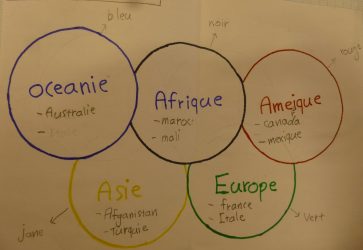 bleu
noir
rouge
oceanie
- Australie
Afrique
- maroc
- mali
Amejque
- canada
- mexique
Asie
- Afganistan
- Turquie
Europe
- france
- Itale
jane
vert